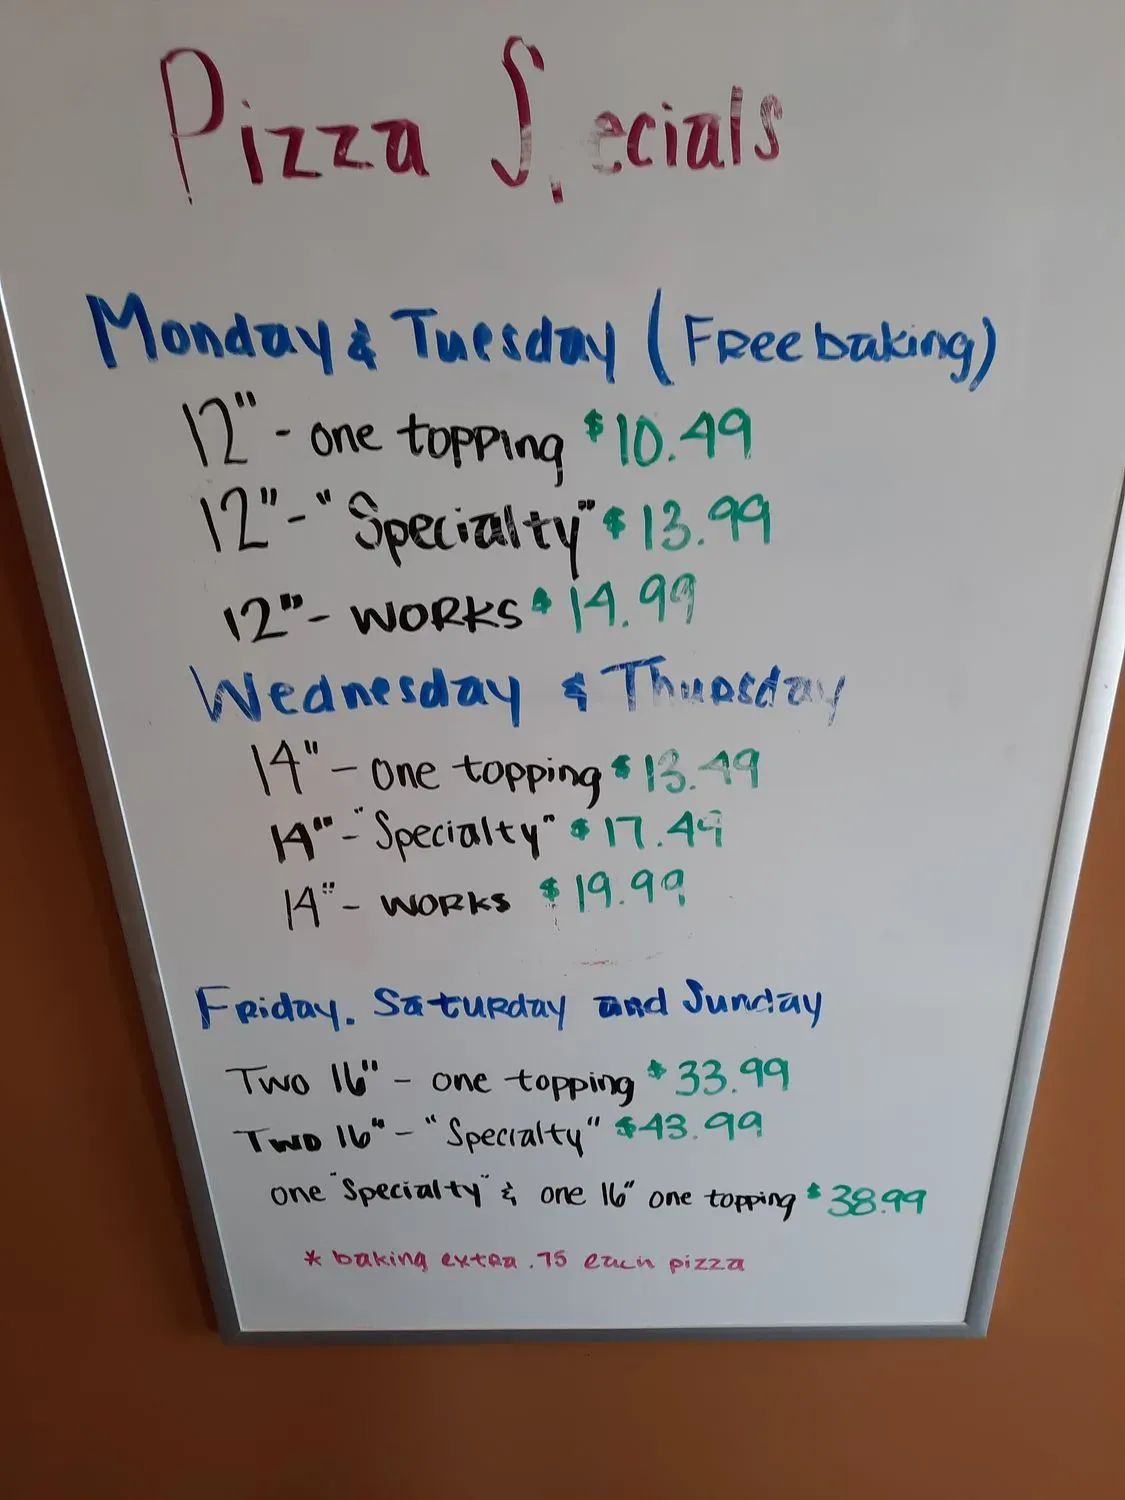 Pizza Specials
Monday & Tuesday (Free baking)
12" - one topping $10.49
12" - "Specialty" $13.99
12" - WORKS $14.99
Wednesday & Thursday
14" - one topping $13.49
14" - "Specialty" $17.49
14" - WORKS $19.99
Friday, Saturday and Sunday
Two 16" - one topping $33.99
Two 16" - "Specialty" $43.99
one "Specialty" & one 16" one topping $38.99
* baking extra .75 each pizza